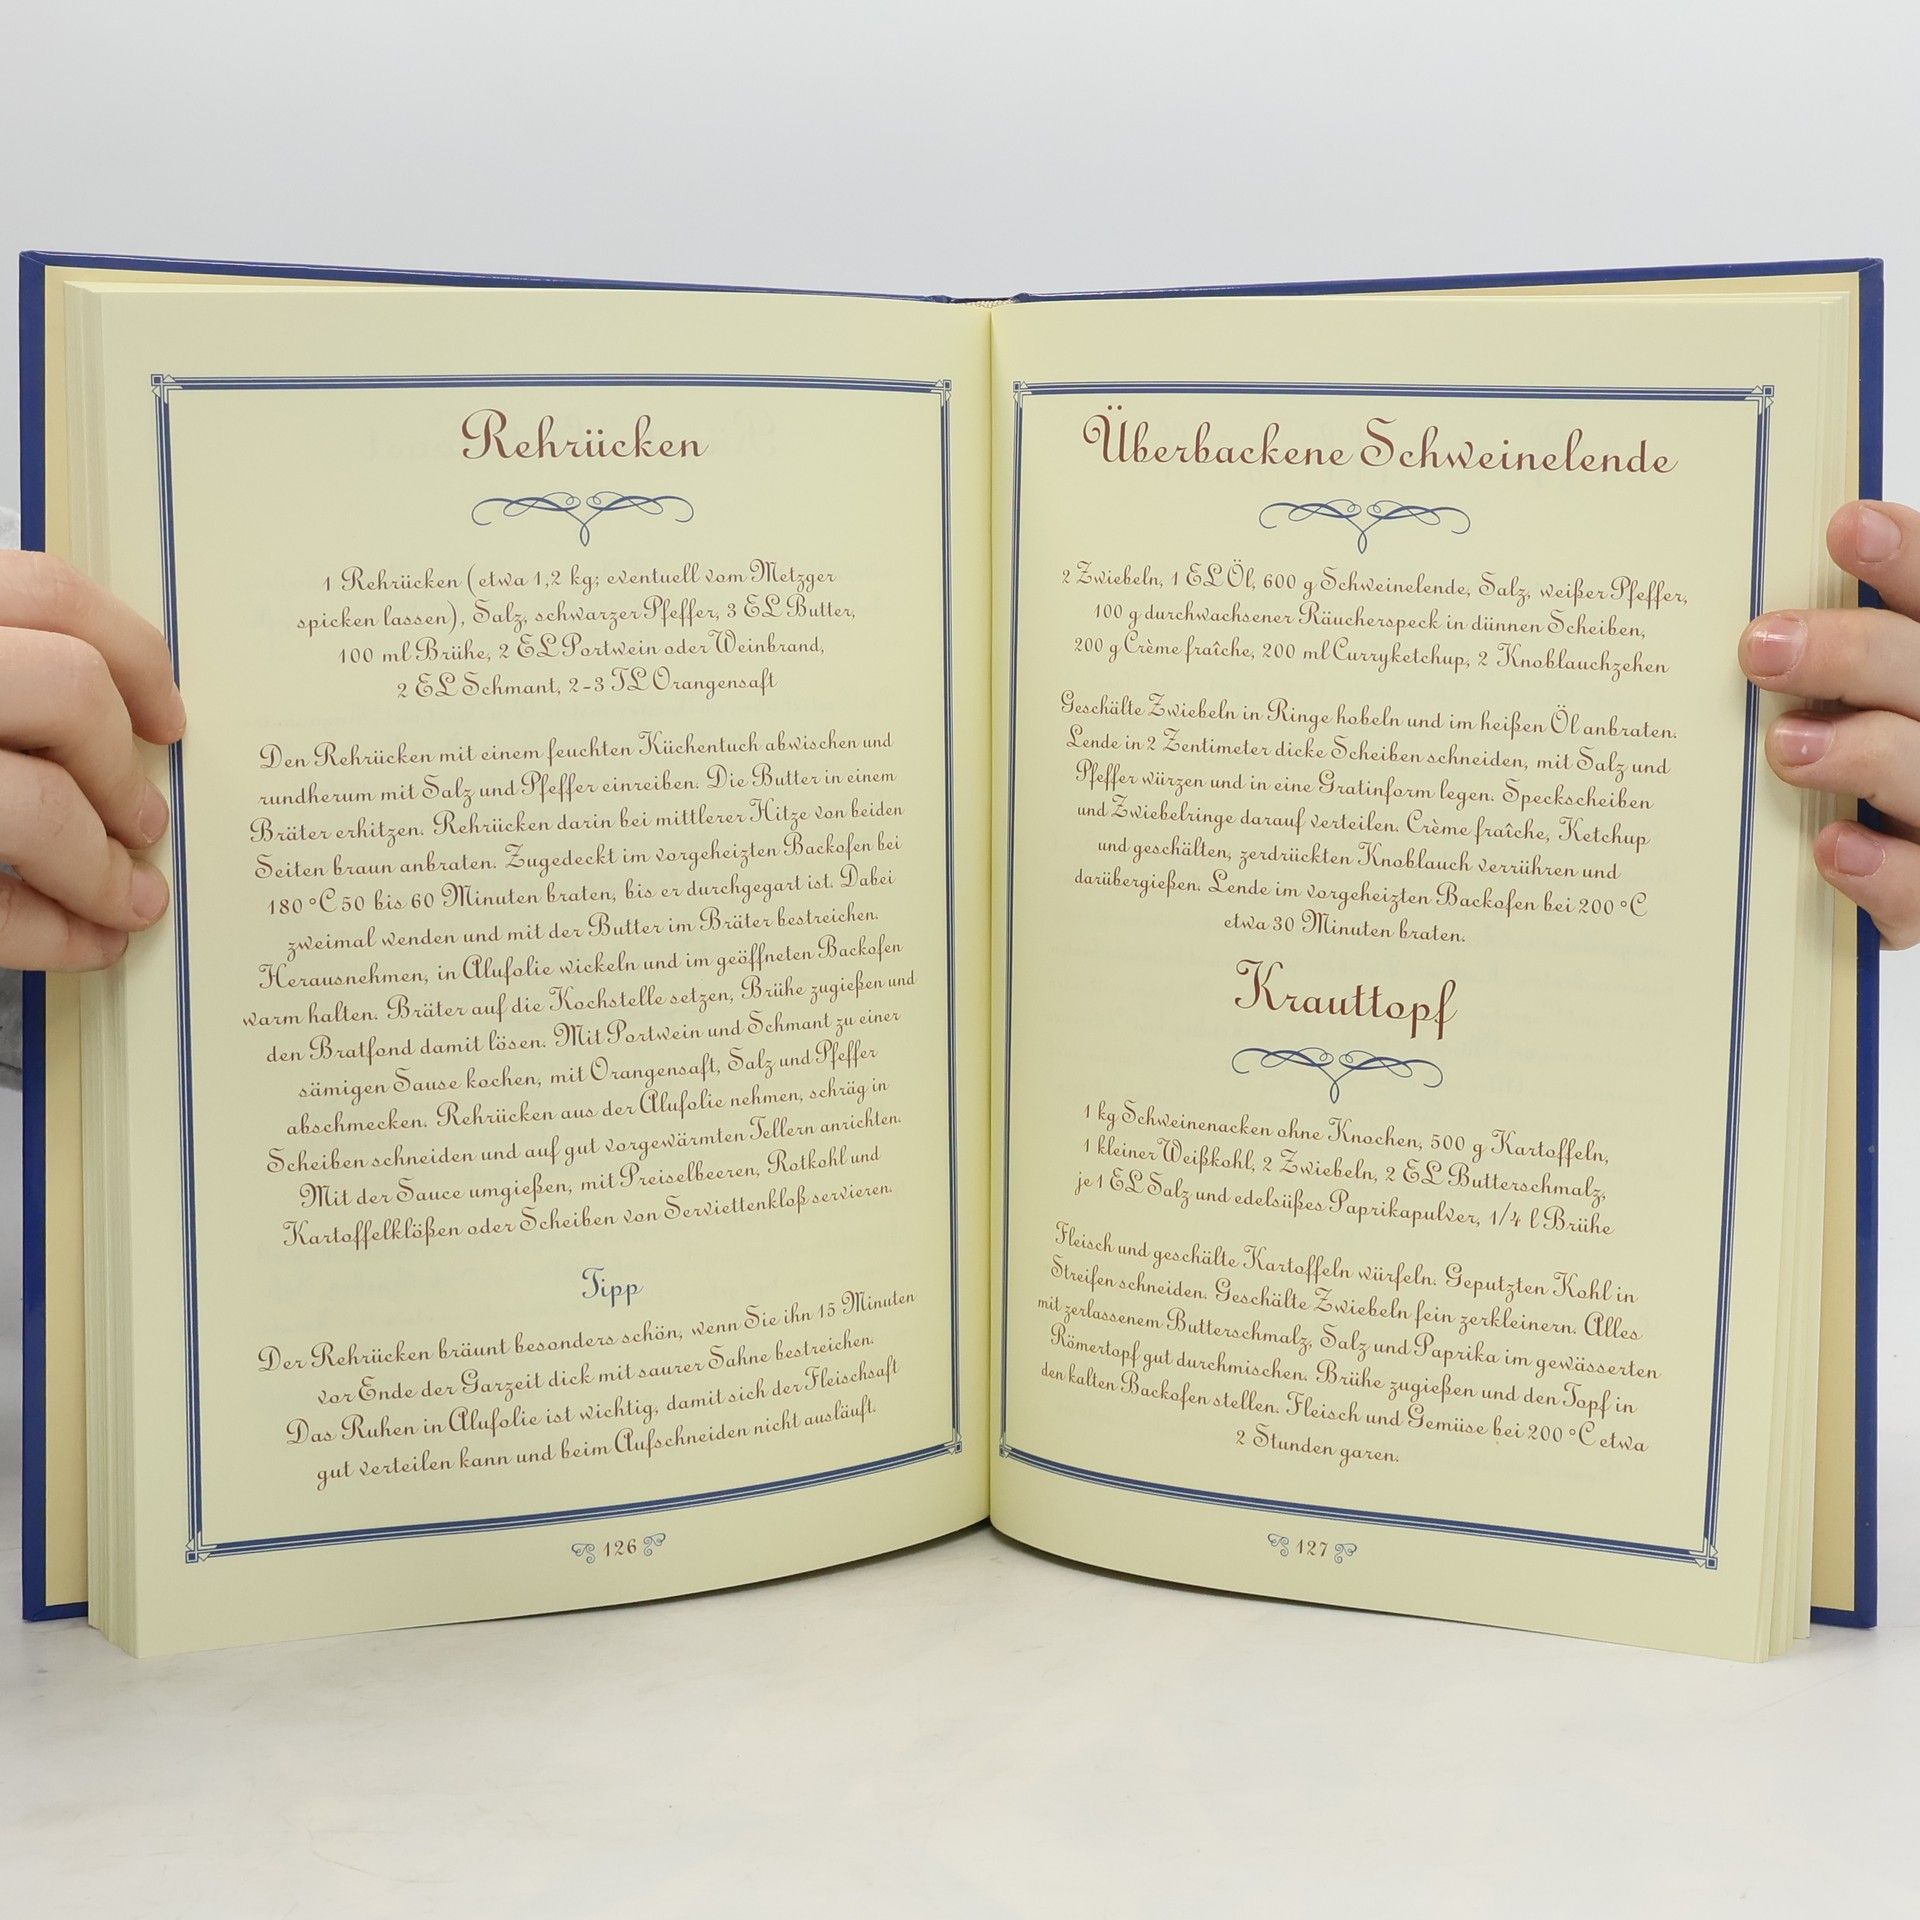 Rehrücken
1 Rehrücken (etwa 1,2 kg; eventuell vom Metzger
spicken lassen), Salz, schwarzer Pfeffer, 3 EL Butter,
100 ml Brühe, 2 EL Portwein oder Weinbrand,
2 EL Schmant, 2-3 TL Orangensaft
Den Rehrücken mit einem feuchten Küchentuch abwischen und
rundherum mit Salz und Pfeffer einreiben. Die Butter in einem
Bräter erhitzen. Rehrücken darin bei mittlerer Hitze von beiden
Seiten braun anbraten. Zugedeckt im vorgeheizten Backofen bei
180 °C 50 bis 60 Minuten braten, bis er durchgegart ist. Dabei
zweimal wenden und mit der Butter im Bräter bestreichen.
Herausnehmen, in Alufolie wickeln und im geöffneten Backofen
warm halten. Bräter auf die Kochstelle setzen, Brühe zugießen und
den Bratfond damit lösen. Mit Portwein und Schmant zu einer
sämigen Sause kochen, mit Orangensaft, Salz und Pfeffer
abschmecken. Rehrücken aus der Alufolie nehmen, schräg in
Scheiben schneiden und auf gut vorgewärmten Tellern anrichten.
Mit der Sauce umgießen, mit Preiselbeeren, Rotkohl und
Kartoffelklößen oder Scheiben von Serviettenkloß servieren.
Tipp
Der Rehrücken bräunt besonders schön, wenn Sie ihn 15 Minuten
vor Ende der Garzeit dick mit saurer Sahne bestreichen.
Das Ruhen in Alufolie ist wichtig, damit sich der Fleischsaft
gut verteilen kann und beim Aufschneiden nicht ausläuft.
126
Überbackene Schweinelende
2 Zwiebeln, 1 EL Öl, 600 g Schweinelende, Salz, weißer Pfeffer,
100 g durchwachsener Räucherspeck in dünnen Scheiben,
200 g Crème fraîche, 200 ml Curryketchup, 2 Knoblauchzehen
Geschälte Zwiebeln in Ringe hobeln und im heißen Öl anbraten.
Lende in 2 Zentimeter dicke Scheiben schneiden, mit Salz und
Pfeffer würzen und in eine Gratinform legen. Speckscheiben
und Zwiebelringe darauf verteilen. Crème fraîche, Ketchup
und geschälten, zerdrückten Knoblauch verrühren und
darübergießen. Lende im vorgeheizten Backofen bei 200 °C
etwa 30 Minuten braten.
Krauttopf
1 kg Schweinenacken ohne Knochen, 500 g Kartoffeln,
1 kleiner Weißkohl, 2 Zwiebeln, 2 EL Butterschmalz,
je 1 EL Salz und edelsüßes Paprikapulver, 1/4 l Brühe
Fleisch und geschälte Kartoffeln würfeln. Geputzten Kohl in
Streifen schneiden. Geschälte Zwiebeln fein zerkleinern. Alles
mit zerlassenem Butterschmalz, Salz und Paprika im gewässerten
Römertopf gut durchmischen. Brühe zugießen und den Topf in
den kalten Backofen stellen. Fleisch und Gemüse bei 200 °C etwa
2 Stunden garen.
127